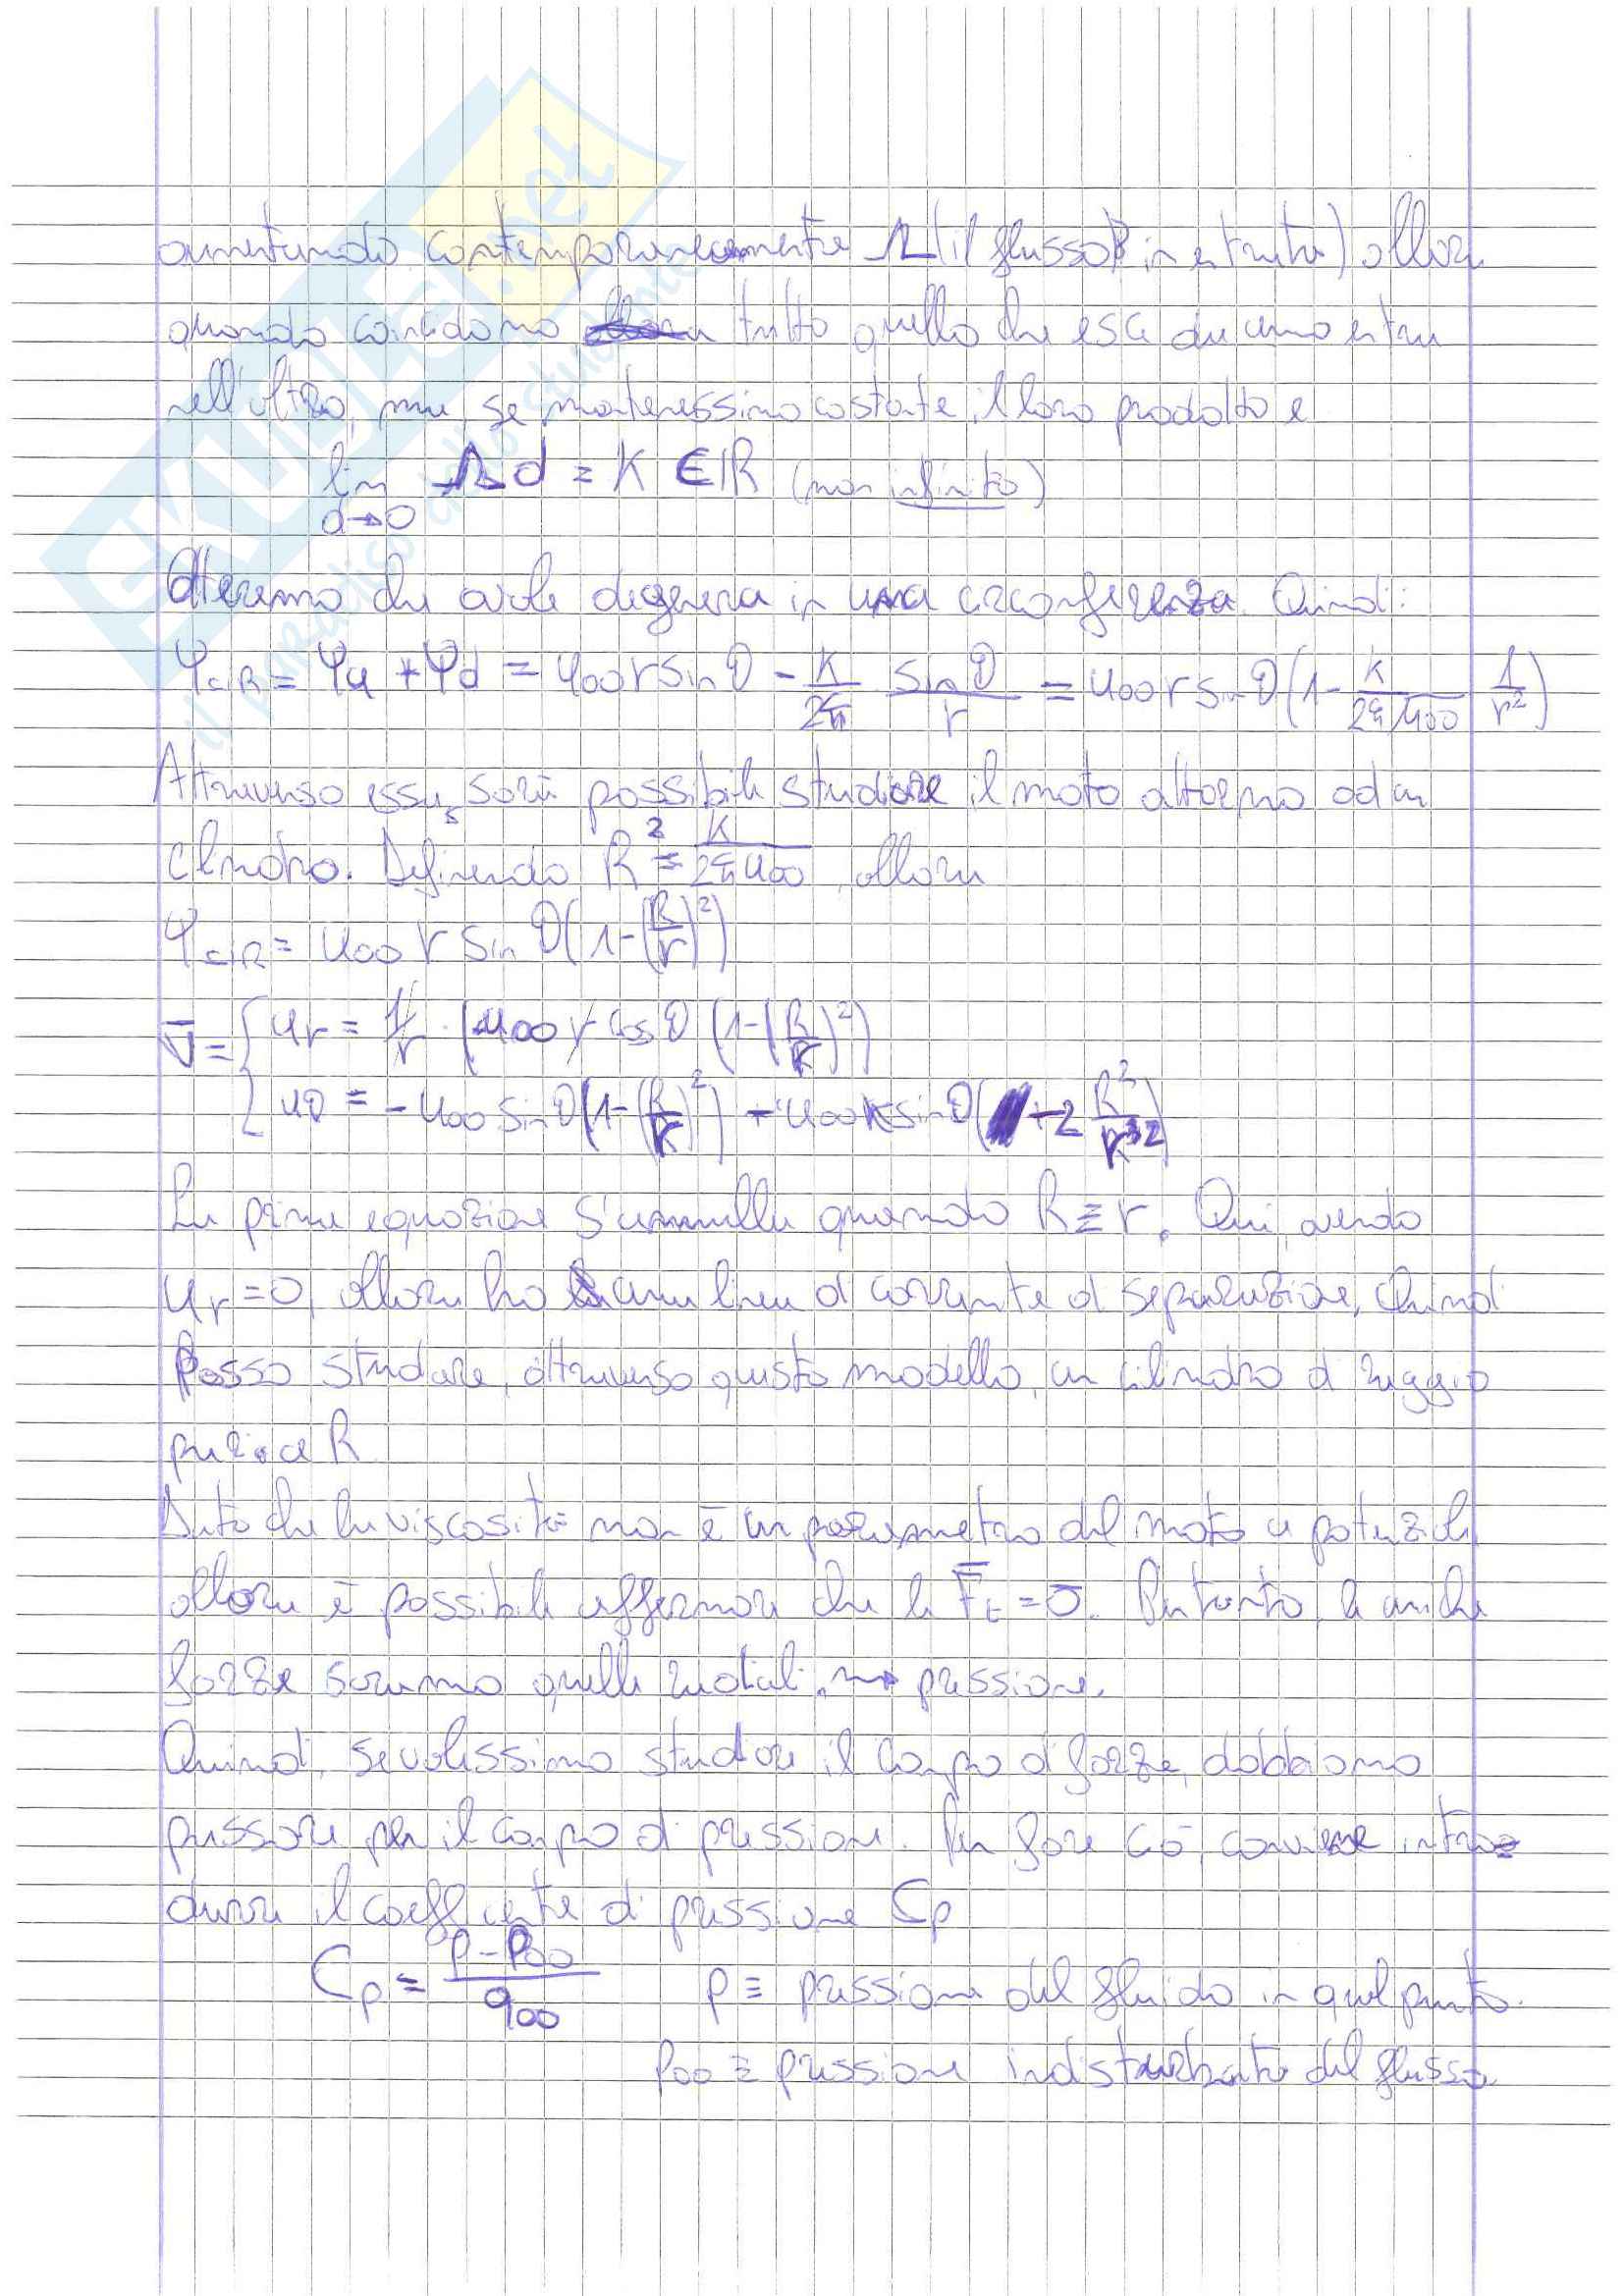 aumentando contemporaneamente Λ (il flusso in entrata) allora
quando coincidono tutto quello che esce da uno entra
nell'altro, ma se mantenessimo costante il loro prodotto e
lim Λd = K ∈ ℝ (non infinito)
d→0
Otteremo che ovale degenera in una circonferenza. Quindi:
Ψcir = Ψu + Ψd = u∞ r sin θ - K/2π sin θ/r = u∞ r sin θ (1 - K/2π u∞ 1/r²)
Attraverso essa, sarà possibile studiare il moto attorno ad un
cilindro. Definendo R² = K/2π u∞, allora
Ψcir = u∞ r sin θ (1 - (R/r)²)
V̄ = { ur = 1/r · (u∞ r cos θ (1 - (R/r)²)
{ uθ = - u∞ sin θ (1 - (R/r)²) - u∞ r sin θ ( + 2 R²/r³)
La prima equazione s'annulla quando R ≡ r. Qui, avendo
ur = 0, allora ho una linea di corrente di separazione, quindi
posso studiare, attraverso questo modello, un cilindro di raggio
pari a R
Dato che la viscosità non è un parametro del moto a potenziale,
allora è possibile affermare che le F̄t = 0̄. Pertanto, le uniche
forze saranno quelle radiali, pressione.
Quindi, se volessimo studiare il campo di forze, dobbiamo
passare per il campo di pressione. Per fare ciò, conviene intro-
durre il coefficiente di pressione Cp
Cp = p - p∞/q∞ p ≡ pressione del fluido in quel punto.
p∞ ≡ pressione indisturbata del flusso.
EKUNA.net
il paradiso dello studente